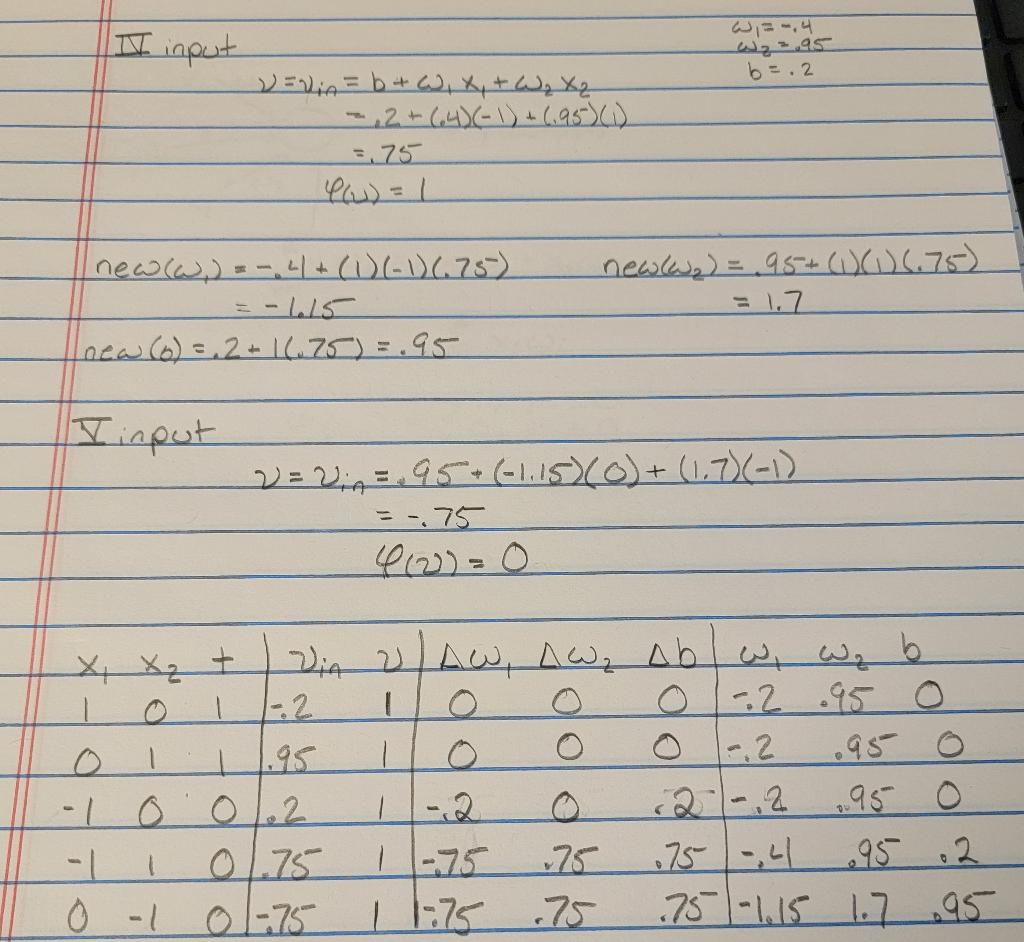 IV input
ω₁ = -.4
ω₂ = .95
b = .2
v = v_in = b + ω₁ x₁ + ω₂ x₂
= .2 + (.4)(-1) + (.95)(1)
= .75
φ(v) = 1
new(ω₁) = -.4 + (1)(-1)(.75) new(ω₂) = .95 + (1)(1)(.75)
= -1.15 = 1.7
new(b) = .2 + 1(.75) = .95
V input
v = v_in = .95 + (-1.15)(0) + (1.7)(-1)
= -.75
φ(v) = 0
x₁ x₂ t | v_in v | Δω₁ Δω₂ Δb | ω₁ ω₂ b
1 0 1 | -.2 1 | 0 0 0 | -.2 .95 0
0 1 1 | .95 1 | 0 0 0 | -.2 .95 0
-1 0 0 | .2 1 | -.2 0 .2 | -.2 .95 0
-1 1 0 | .75 1 | -.75 .75 .75 | -.4 .95 .2
0 -1 0 | -.75 1 | -.75 .75 .75 | -1.15 1.7 .95